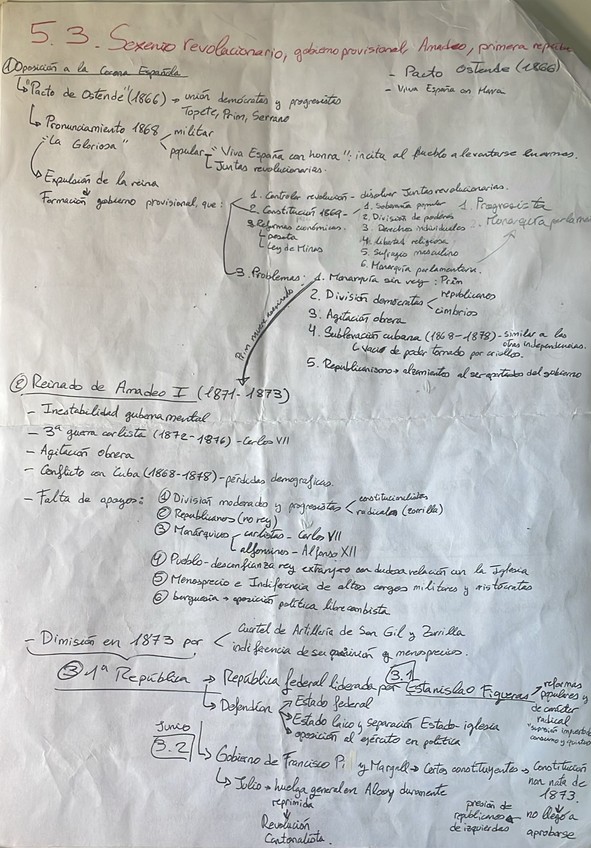 5.3. Sexenio revolucionario, gobierno provisional Amadeo, primera
① Oposición a la Corona Española
- Pacto Ostende (1866)
- Viva España con Honra
↳ "Pacto de Ostende" (1866) → unión demócratas y progresistas
Topete, Prim, Serrano
↳ Pronunciamiento 1868 militar
"La Gloriosa"
popular "Viva España con honra": incita al pueblo a levantarse en armas.
Juntas revolucionarias.
↳ Expulsión de la reina
Formación gobierno provisional, que:
1. Controlar revolución - disolver Juntas revolucionarias.
2. Constitución 1869
1. Soberanía popular
2. División de poderes
3. Derechos individuales
4. Libertad religiosa
5. Sufragio masculino
6. Monarquía parlamentaria
1. Progresista
Monarquía parlamen
Reformas económicas:
peseta
Ley de Minas
3. Problemas:
1. Monarquía sin rey: Prim
2. División demócratas republicanos
cimbrios
3. Agitación obrera
4. Sublevación cubana (1868-1878) - similar a las
otras independencias.
↳ vacío de poder tomado por criollos.
5. Republicanismo → alzamientos al ser apartados del gobierno
Prim muere asesinado
② Reinado de Amadeo I (1871-1873)
- Inestabilidad gubernamental
- 3ª guerra carlista (1872-1876) - Carlos VII
- Agitación obrera
- Conflicto con Cuba (1868-1878) - pérdidas demográficas.
- Falta de apoyos:
① División moderado y progresistas constitucionalistas
radicales (zorrilla)
② Republicanos (no rey)
③ Monárquicos carlistas - Carlos VII
alfonsinos - Alfonso XII
④ Pueblo - desconfianza rey extranjero con dudosa relación con la Iglesia
⑤ Menosprecio e Indiferencia de altos cargos militares y aristócratas
⑥ burguesía → oposición política librecambista
- Dimisión en 1873 por
Cuartel de Artillería de San Gil y Zorrilla
indiferencia de su posición y menosprecios.
③ 1ª República → República federal liderada por Estanislao Figueras
3.1
reformas
populares y
de carácter
radical
consumo y quintas
↳ Defendían
Estado federal
Estado laico y separación Estado-iglesia
oposición al ejército en política
Junio
3.2
↳ Gobierno de Francisco Pi y Margall → Cortes constituyentes → Constitución
non nata de
1873.
↳ Julio → huelga general en Alcoy duramente
reprimida
Revolución
Cantonalista.
presión de
republicanos
de izquierdas
no llegó a
aprobarse